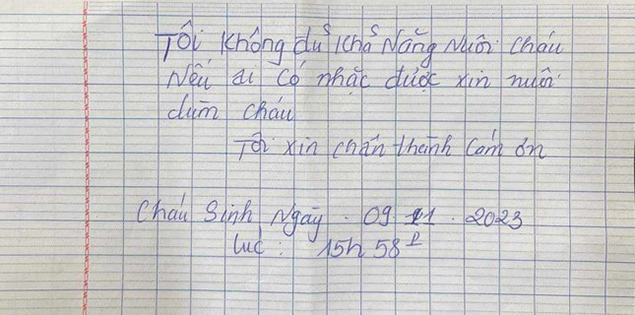 Tôi không đủ khả năng nuôi cháu
Nếu ai có nhặc được xin nuôi
dùm cháu
Tôi xin chân thành cám ơn
Cháu Sinh Ngày . 09 . 11 . 2023
lúc : 15h 58P